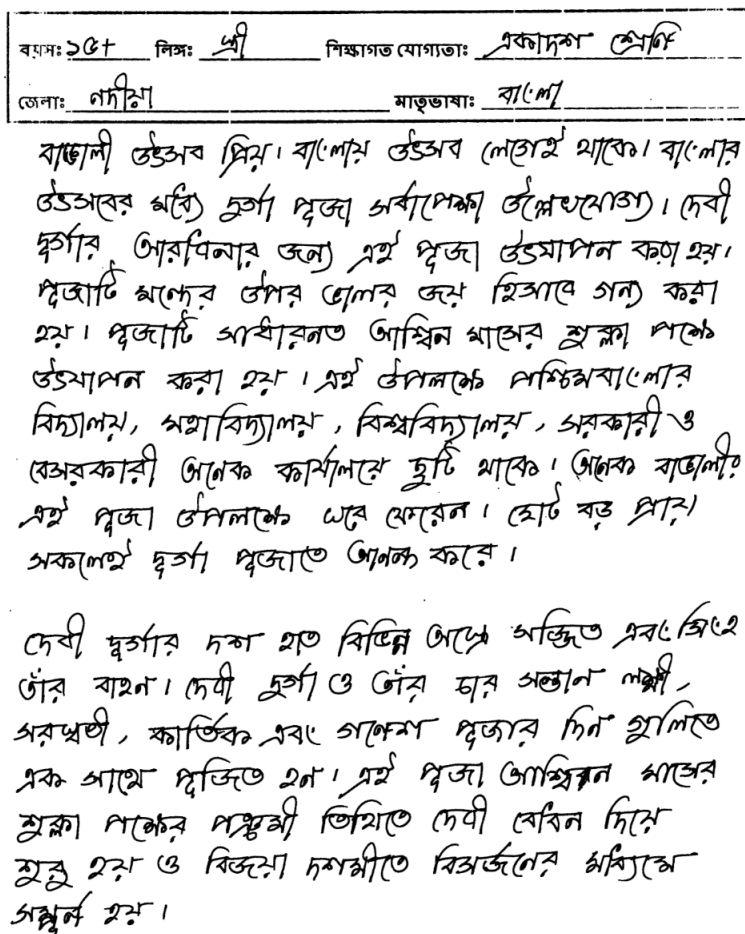 বয়স: ১৫+ লিঙ্গ: স্ত্রী শিক্ষাগত যোগ্যতা: একাদশ শ্রেণি
জেলা: নদীয়া মাতৃভাষা: বাংলা
বাঙালী উৎসব প্রিয়। বাংলায় উৎসব লেগেই থাকে। বাংলার
উৎসবের মধ্যে দুর্গা পূজা সর্বাপেক্ষা উল্লেখযোগ্য। দেবী
দূর্গার আরাধনার জন্য এই পূজা উৎযাপন করা হয়।
পূজাটি মন্দের উপর ভালের জয় হিসাবে গন্য করা
হয়। পূজাটি সাধারনত আশ্বিন মাসের শুক্লা পক্ষে
উৎযাপন করা হয়। এই উপলক্ষে পশ্চিমবাংলার
বিদ্যালয়, মহাবিদ্যালয়, বিশ্ববিদ্যালয়, সরকারী ও
বেসরকারী অনেক কার্যালয়ে ছুটি থাকে। অনেক বাঙালীর
এই পূজা উপলক্ষে ঘরে ফেরেন। ছোট বড় প্রায়
সকলেই দূর্গা পূজাতে আনন্দ করে।
দেবী দূর্গার দশ হাত বিভিন্ন অস্ত্রে সজ্জিত এবং সিংহ
তাঁর বাহন। দেবী দুর্গা ও তাঁর চার সন্তান লক্ষ্মী,
সরস্বতী, কার্তিক এবং গনেশ পূজার দিন গুলিতে
এক সাথে পূজিত হন। এই পূজা আশ্বিন মাসের
শুক্লা পক্ষের পঞ্চমী তিথিতে দেবী বোধন দিয়ে
শুরু হয় ও বিজয়া দশমীতে বিসর্জনের মধ্যমে
সম্পূর্ন হয়।